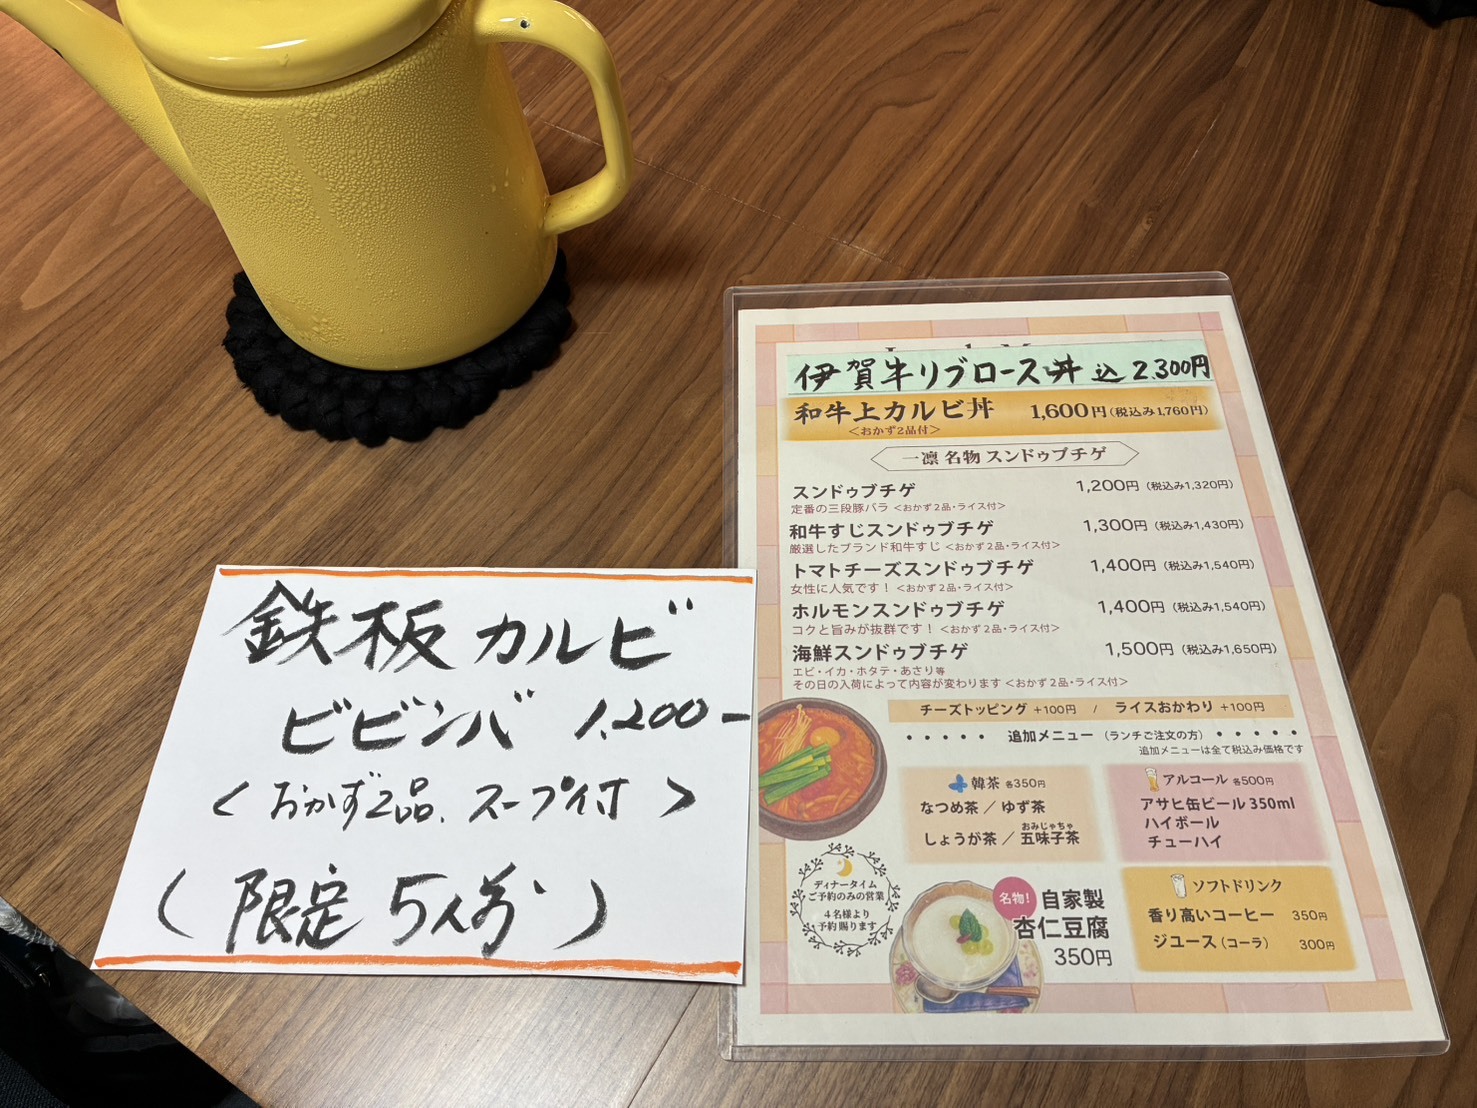 伊賀牛リブロース丼 込 2,300円
和牛上カルビ丼 1,600円(税込み1,760円)
<おかず2品付>
一凛 名物 スンドゥブチゲ
スンドゥブチゲ 1,200円(税込み1,320円)
定番の三段豚バラ<おかず2品・ライス付>
和牛すじスンドゥブチゲ 1,300円(税込み1,430円)
厳選したブランド和牛すじ<おかず2品・ライス付>
トマトチーズスンドゥブチゲ 1,400円(税込み1,540円)
女性に人気です!<おかず2品・ライス付>
ホルモンスンドゥブチゲ 1,400円(税込み1,540円)
コクと旨みが抜群です!<おかず2品・ライス付>
海鮮スンドゥブチゲ 1,500円(税込み1,650円)
エビ・イカ・ホタテ・あさり等
その日の入荷によって内容が変わります<おかず2品・ライス付>
チーズトッピング +100円 / ライスおかわり +100円
・・・・・ 追加メニュー(ランチご注文の方)・・・・・
追加メニューは全て税込み価格です
韓茶 各350円
なつめ茶/ゆず茶
しょうが茶/五味子茶
おみじゃちゃ
アルコール 各500円
アサヒ缶ビール350ml
ハイボール
チューハイ
ディナータイム
ご予約のみの営業
4名様より
予約賜ります
名物!
自家製
杏仁豆腐
350円
ソフトドリンク
香り高いコーヒー 350円
ジュース(コーラ) 300円
鉄板カルビ
ビビンバ 1,200-
<おかず2品、スープ付>
(限定5人前)